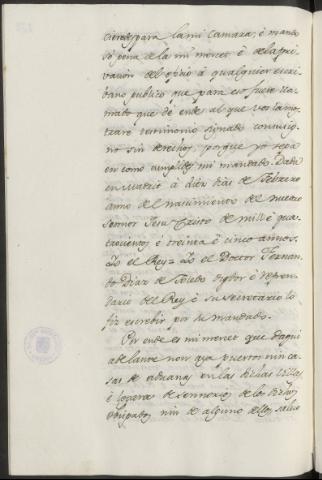 ciere para la mi Camara; é mando
só pena de la mi merced é de la pri
vacion del oficio á qualquier escri
bano publico que para eso fuere lla
mado que dé ende al que vos la mos
trare testimonio signado con su sig
no sin derechos, porque yo sepa
en como cumplides mi mandado. Dada
en Madrid á diez dias de Febrero
anno del nacimiento del nuestro
Sennor Jesu Cristo de mill é qua
trocientos é treinta é cinco annos.
Yo el Rey = Yo el Doctor Fernan
do Diaz de Toledo oydor é refren
dario del Rey é su secretario la
fiz escrebir por su mandado.
Por ende es mi merced que daqui
adelante non aya puertos nin ca
sas de aduanas en las dichas villas
é logares de sennorios de los dichos
Obispados nin de alguno dellos, salvo